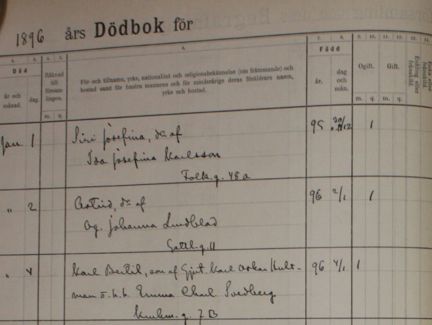 1896 års Dödbok för
Död
Räknad till församlingen.
För- och tillnamn, yrke, nationalitet och religionsbekännelse (om främmande) och bostad samt för hustru mannens och för minderårige deras föräldrars namn, yrke och bostad.
Född
Ogift.
Gift.
år och månad.
dag.
år.
dag och mån.
m. q. m. q. m. q.
Jan. 1 Siri Josefina, dr af 95 1
Ida Josefina Karlsson
Folk.g. 48a
" 2 Astrid, dr af 96 2/1 1
Ag. Johanna Lundblad
Gotl.g. 11
" 4 Karl Bertil, son af Gjut. Karl Oskar Hult- 96 4/1 1
man o. h. h. Emma Charl. Svedberg
7 B